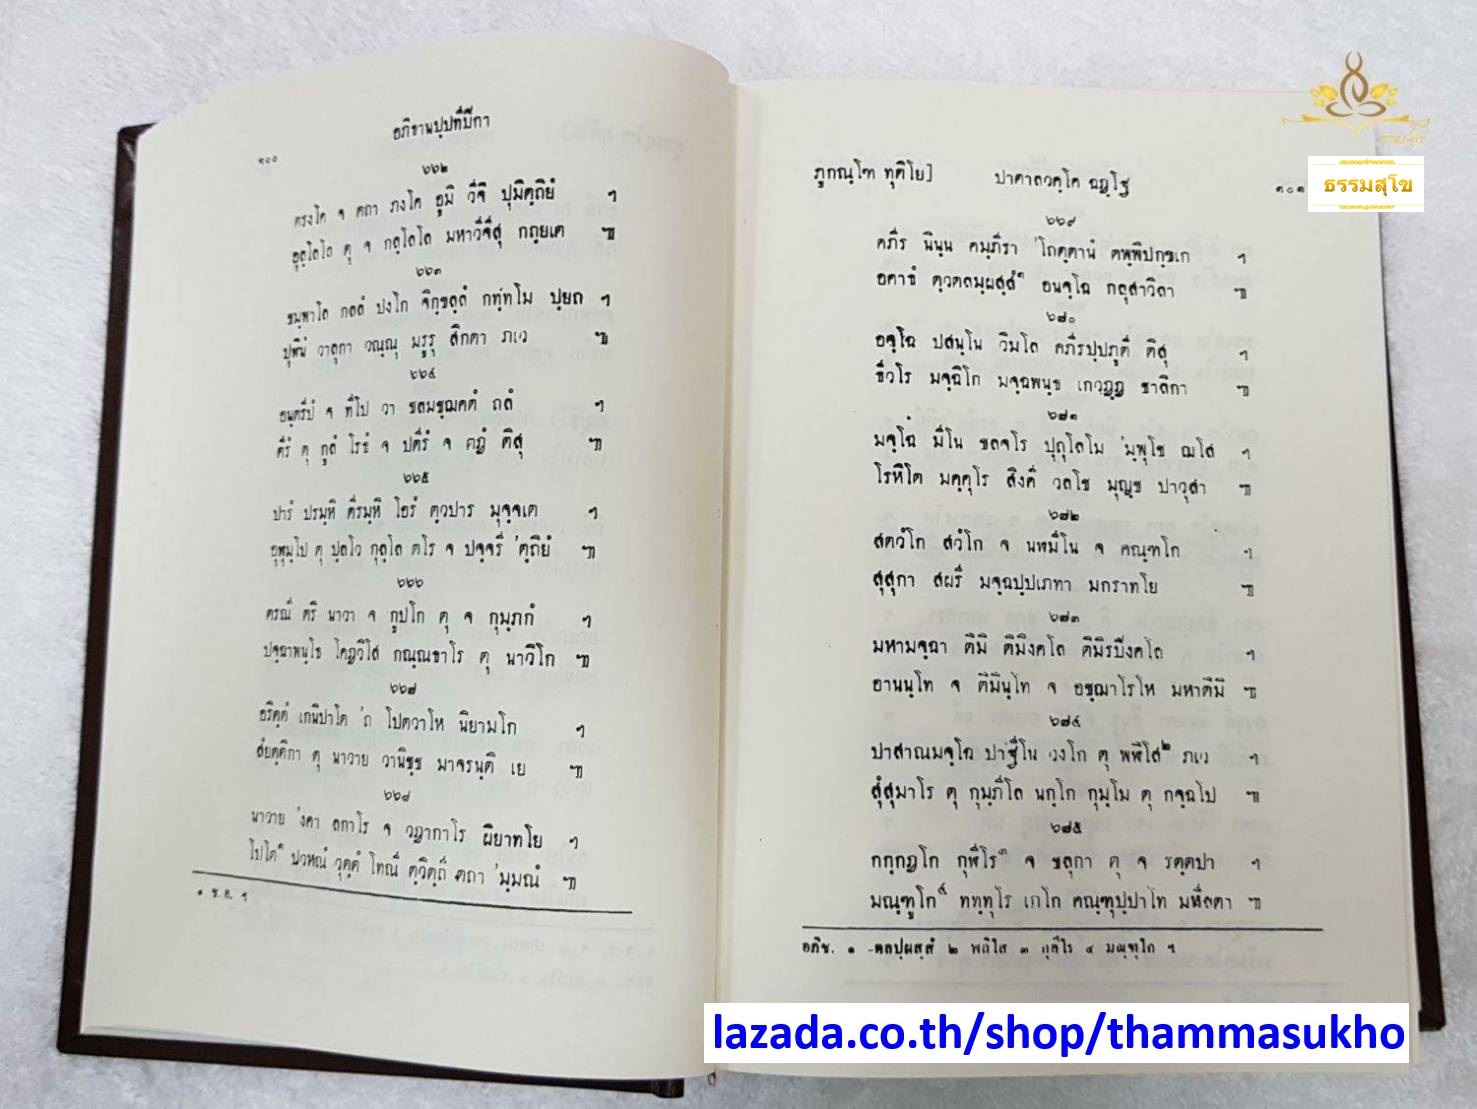 อภิธานปฺปทีปิกา
๑๐๐
๖๖๒
ตรงฺโค จ ตถา ภงฺโค อูมิ วีจิ ปุมิตฺถิยํ ฯ
อุลฺโลโล ตุ จ กลฺโลโล มหาวีจีสุ กถฺยเต ๚
๖๖๓
ชมฺพาโล กลลํ ปงฺโก จิกฺขลฺลํ กทฺทโม ปฺยถ ฯ
ปุฬินํ วาลุกา วณฺณุ มรูรุ สิกตา ภเว ๚
๖๖๔
อนฺตรีปํ จ ทีโป วา ชลมชฺฌคตํ ถลํ
ตีรํ ตุ กูลํ โรธํ จ ปตีรํ จ ตฏํ ติสุ ๚
๖๖๕
ปารํ ปรมฺหิ ตีรมฺหิ โอรํ ตฺวปาร มุจฺจเต ฯ
อุฬุมฺโป ตุ ปฺลโว กุลฺโล ตโร จ ปจฺจรี 'ตฺถิยํ ๚
๖๖๖
ตรณี ตริ นาวา จ กูปโก ตุ จ กุมฺภกํ ฯ
ปจฺฉาพนฺโธ โคฏวิโส กณฺณธาโร ตุ นาวิโก ๚
๖๖๗
อริตฺตํ เกนิปาโต 'ถ โปตวาโห นิยามโก ฯ
สํยตฺติกา ตุ นาวาย วาณิชฺช มาจรนฺติ เย ๚
๖๖๘
นาวาย 'งฺคา ลกาโร จ วฏากาโร ผิยาทโย ฯ
โปโต๑ ปวหนํ วุตฺตํ โทณี ตฺวิตฺถี ตถา 'มฺมณํ ๚
๑ ช.อ. ฯ
ภูกณฺโฑ ทุติโย]
ปาตาลวคฺโค ฉฏฺโฐ
๑๐๑
๖๖๙
คภีร นินฺน คมฺภีรา 'โถตฺตานํ ตพฺพิปกฺขเก ฯ
อคาธํ ตฺวตลมฺผสฺสํ๑ อนจฺโฉ กลุสาวิลา ๚
๖๗๐
อจฺโฉ ปสนฺโน วิมโล คภีรปฺปภุตี ติสุ ฯ
ธีวโร มจฺฉิโก มจฺฉพนฺธ เกวฏฺฏ ชาลิกา ๚
๖๗๑
มจฺโฉ มีโน ชลจโร ปุถุโลโม 'มฺพุโช ฌโส ฯ
โรหิโต มคฺคุโร สิงฺคี วลโช มุญฺช ปาวุสา ๚
๖๗๒
สตวํโก สวํโก จ นฬมีโน จ คณฺฑโก ฯ
สุสุกา สผรี มจฺฉปฺปเภทา มกราทโย ๚
๖๗๓
มหามจฺฉา ติมิ ติมิงฺคโล ติมิรปิงฺคโล ฯ
อานนฺโท จ ติมินฺโท จ อชฺฌาโรโห มหาติมิ ๚
๖๗๔
ปาสาณมจฺโฉ ปาฐีโน วงฺโก ตุ พฬิโส๒ ภเว ฯ
สุํสุมาโร ตุ กุมฺภีโล นกฺโก กุมฺโม ตุ กจฺฉโป ๚
๖๗๕
กกฺกฏโก กุฬีโร๓ จ ชลุกา ตุ จ รตฺตปา ฯ
มณฺฑูโก๔ ททฺทุโร เภโก คณฺฑุปฺปาโท มหีลตา ๚
อภิธ. ๑ -ตลปฺผสฺสํ ๒ พลิโส ๓ กุลีโร ๔ มณฺฑุโก ฯ
ธรรมสุโข
lazada.co.th/shop/thammasukho